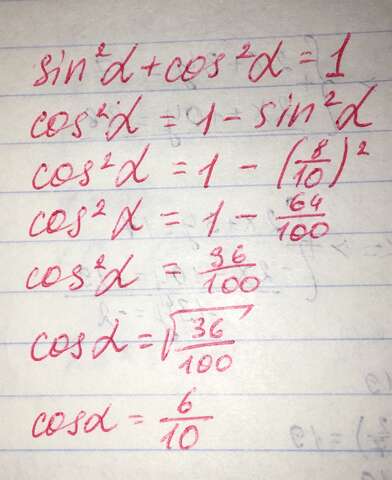 sin²α + cos²α = 1
cos²α = 1 - sin²α
cos²α = 1 - (8/10)²
cos²α = 1 - 64/100
cos²α = 36/100
cosα = √36/100
cosα = 6/10